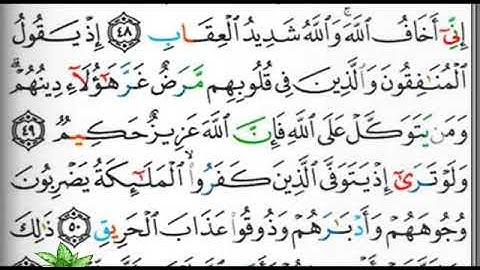 إِنِّىٓ أَخَافُ ٱللَّهَ ۚ وَٱللَّهُ شَدِيدُ ٱلْعِقَابِ ٤٨ إِذْ يَقُولُ
ٱلْمُنَٰفِقُونَ وَٱلَّذِينَ فِى قُلُوبِهِم مَّرَضٌ غَرَّ هَٰٓؤُلَآءِ دِينُهُمْ ۗ
وَمَن يَتَوَكَّلْ عَلَى ٱللَّهِ فَإِنَّ ٱللَّهَ عَزِيزٌ حَكِيمٌ ٤٩
وَلَوْ تَرَىٰٓ إِذْ يَتَوَفَّى ٱلَّذِينَ كَفَرُوا۟ ۙ ٱلْمَلَٰٓئِكَةُ يَضْرِبُونَ
وُجُوهَهُمْ وَأَدْبَٰرَهُمْ وَذُوقُوا۟ عَذَابَ ٱلْحَرِيقِ ٥٠ ذَٰلِكَ